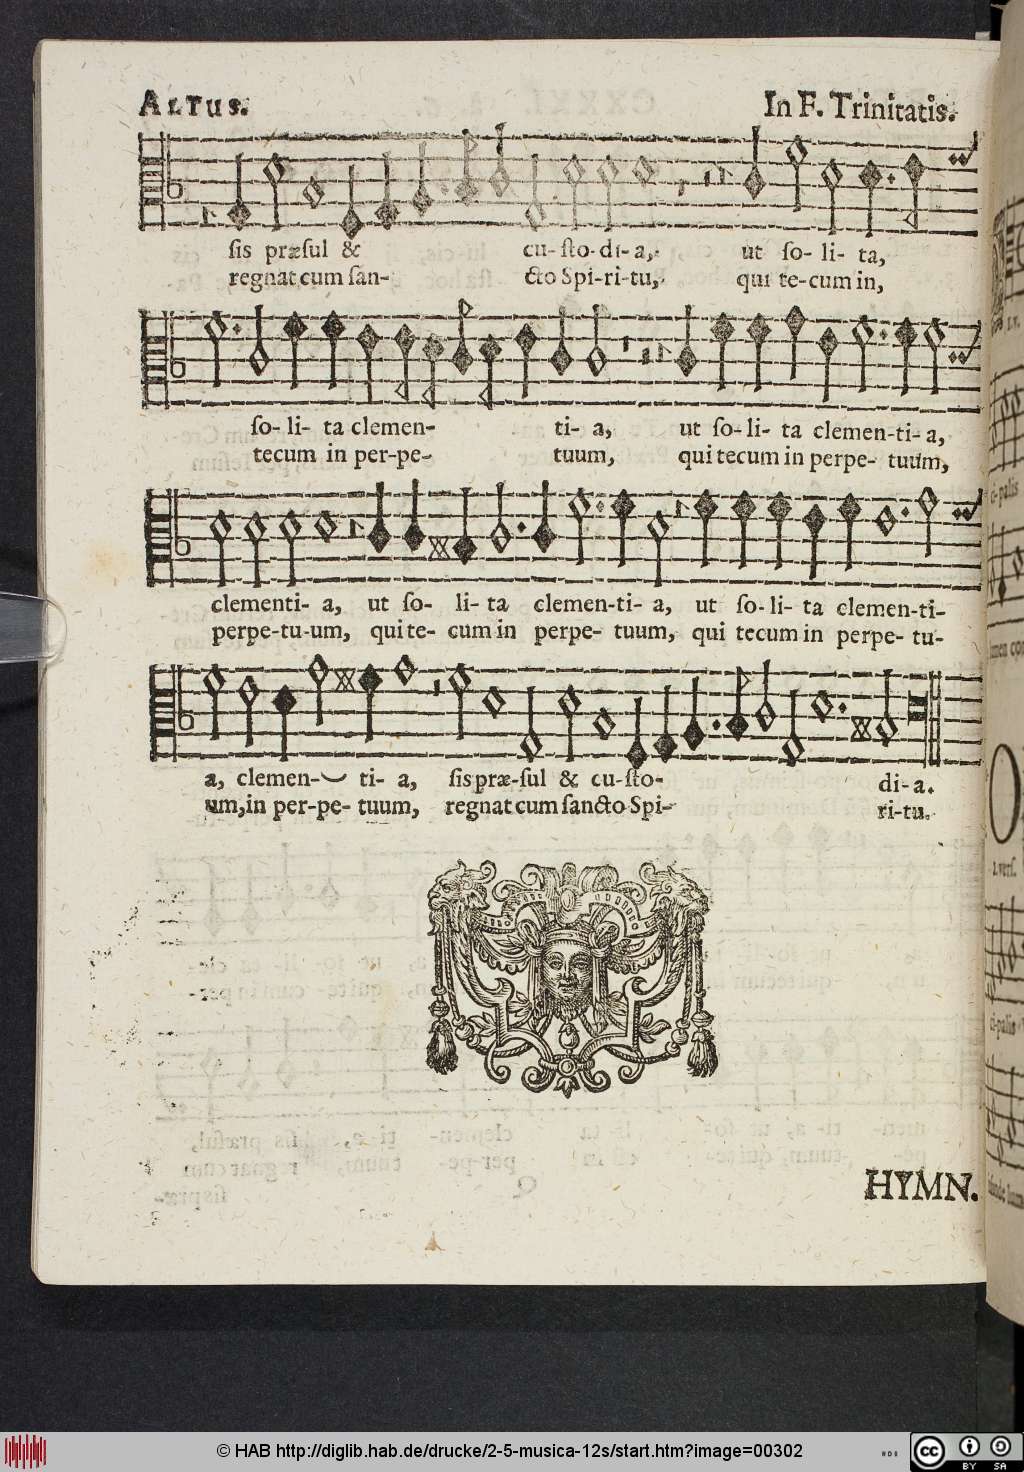 ALTUS. In F. Trinitatis.
ſis præſul & cu-ſto-di-a, ut ſo-li-ta,
regnat cum ſan- cto Spi-ri-tu, qui te-cum in,
ſo-li-ta clemen- ti-a, ut ſo-li-ta clemen-ti-a,
tecum in per-pe- tuum, qui tecum in perpe-tuum,
clementi-a, ut ſo-li-ta clemen-ti-a, ut ſo-li-ta clemen-ti-
perpe-tu-um, qui te-cum in perpe-tuum, qui tecum in perpe-tu-
a, clemen- ti-a, ſis præ-ſul & cu-ſto- di-a.
um, in per-pe-tuum, regnat cum ſancto Spi- ri-tu.
HYMN.
© HAB http://diglib.hab.de/drucke/2-5-musica-12s/start.htm?image=00302
cc BY SA